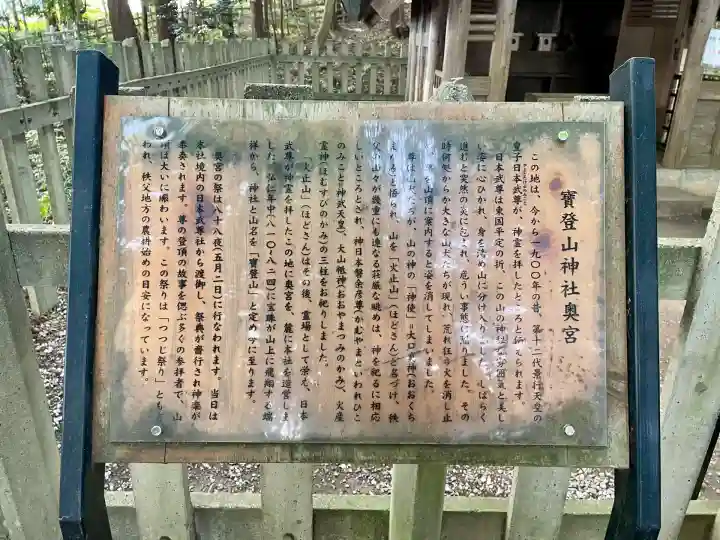 寶登山神社奥宮
この地は、今から一九〇〇年の昔、第十二代景行天皇の
皇子日本武尊が、神霊を拝したところと伝えられます。
日本武尊は東国平定の折、この山の神々
い姿に心ひかれ、身を清め山に分け入り
しばらく
進むと突然の火に包まれ、危うい事態に陥りました。その
時何処からか大きな山犬たちが現れ、荒れ狂う火を消し止
め、尊を山頂に案内すると姿を消してしまいました。
尊は山犬たちが、山の神の「神使」=大口真神(おおくち
まがみ)と悟られ、山を「火止山」(ほどさん)と名づけ、秩
父の山々が幾重にも連なる荘厳な眺めは、神を祀るに相応
しいところとされ、神日本磐余彦尊(かむやまといわれひこ
のみこと・神武天皇)、大山祇神(おおやまつみのかみ)、火産
霊神(ほむすびのかみ)の三柱をお祀りしました。
「火止山」(ほどさん)はその後、霊場として栄え、日本
武尊が神霊を拝したこの地に奥宮を、麓に本社を造営しま
した。弘仁年中(八一〇~八二四)に宝珠が山上に飛翔する瑞
祥から、神社と山名を「寶登山」と定め今に至ります。
奥宮の祭は八十八夜(五月二日)に行なわれます。当日は
本社境内の日本武尊社から渡御し、祭典が斎行され神楽が
奉奏されます。尊の登頂の故事を偲ぶ多くの参拝者で、山
頂は大いに賑わいます。この祭りは「つつじ祭り」とも
われ、秩父地方の農耕始めの目安になっています。